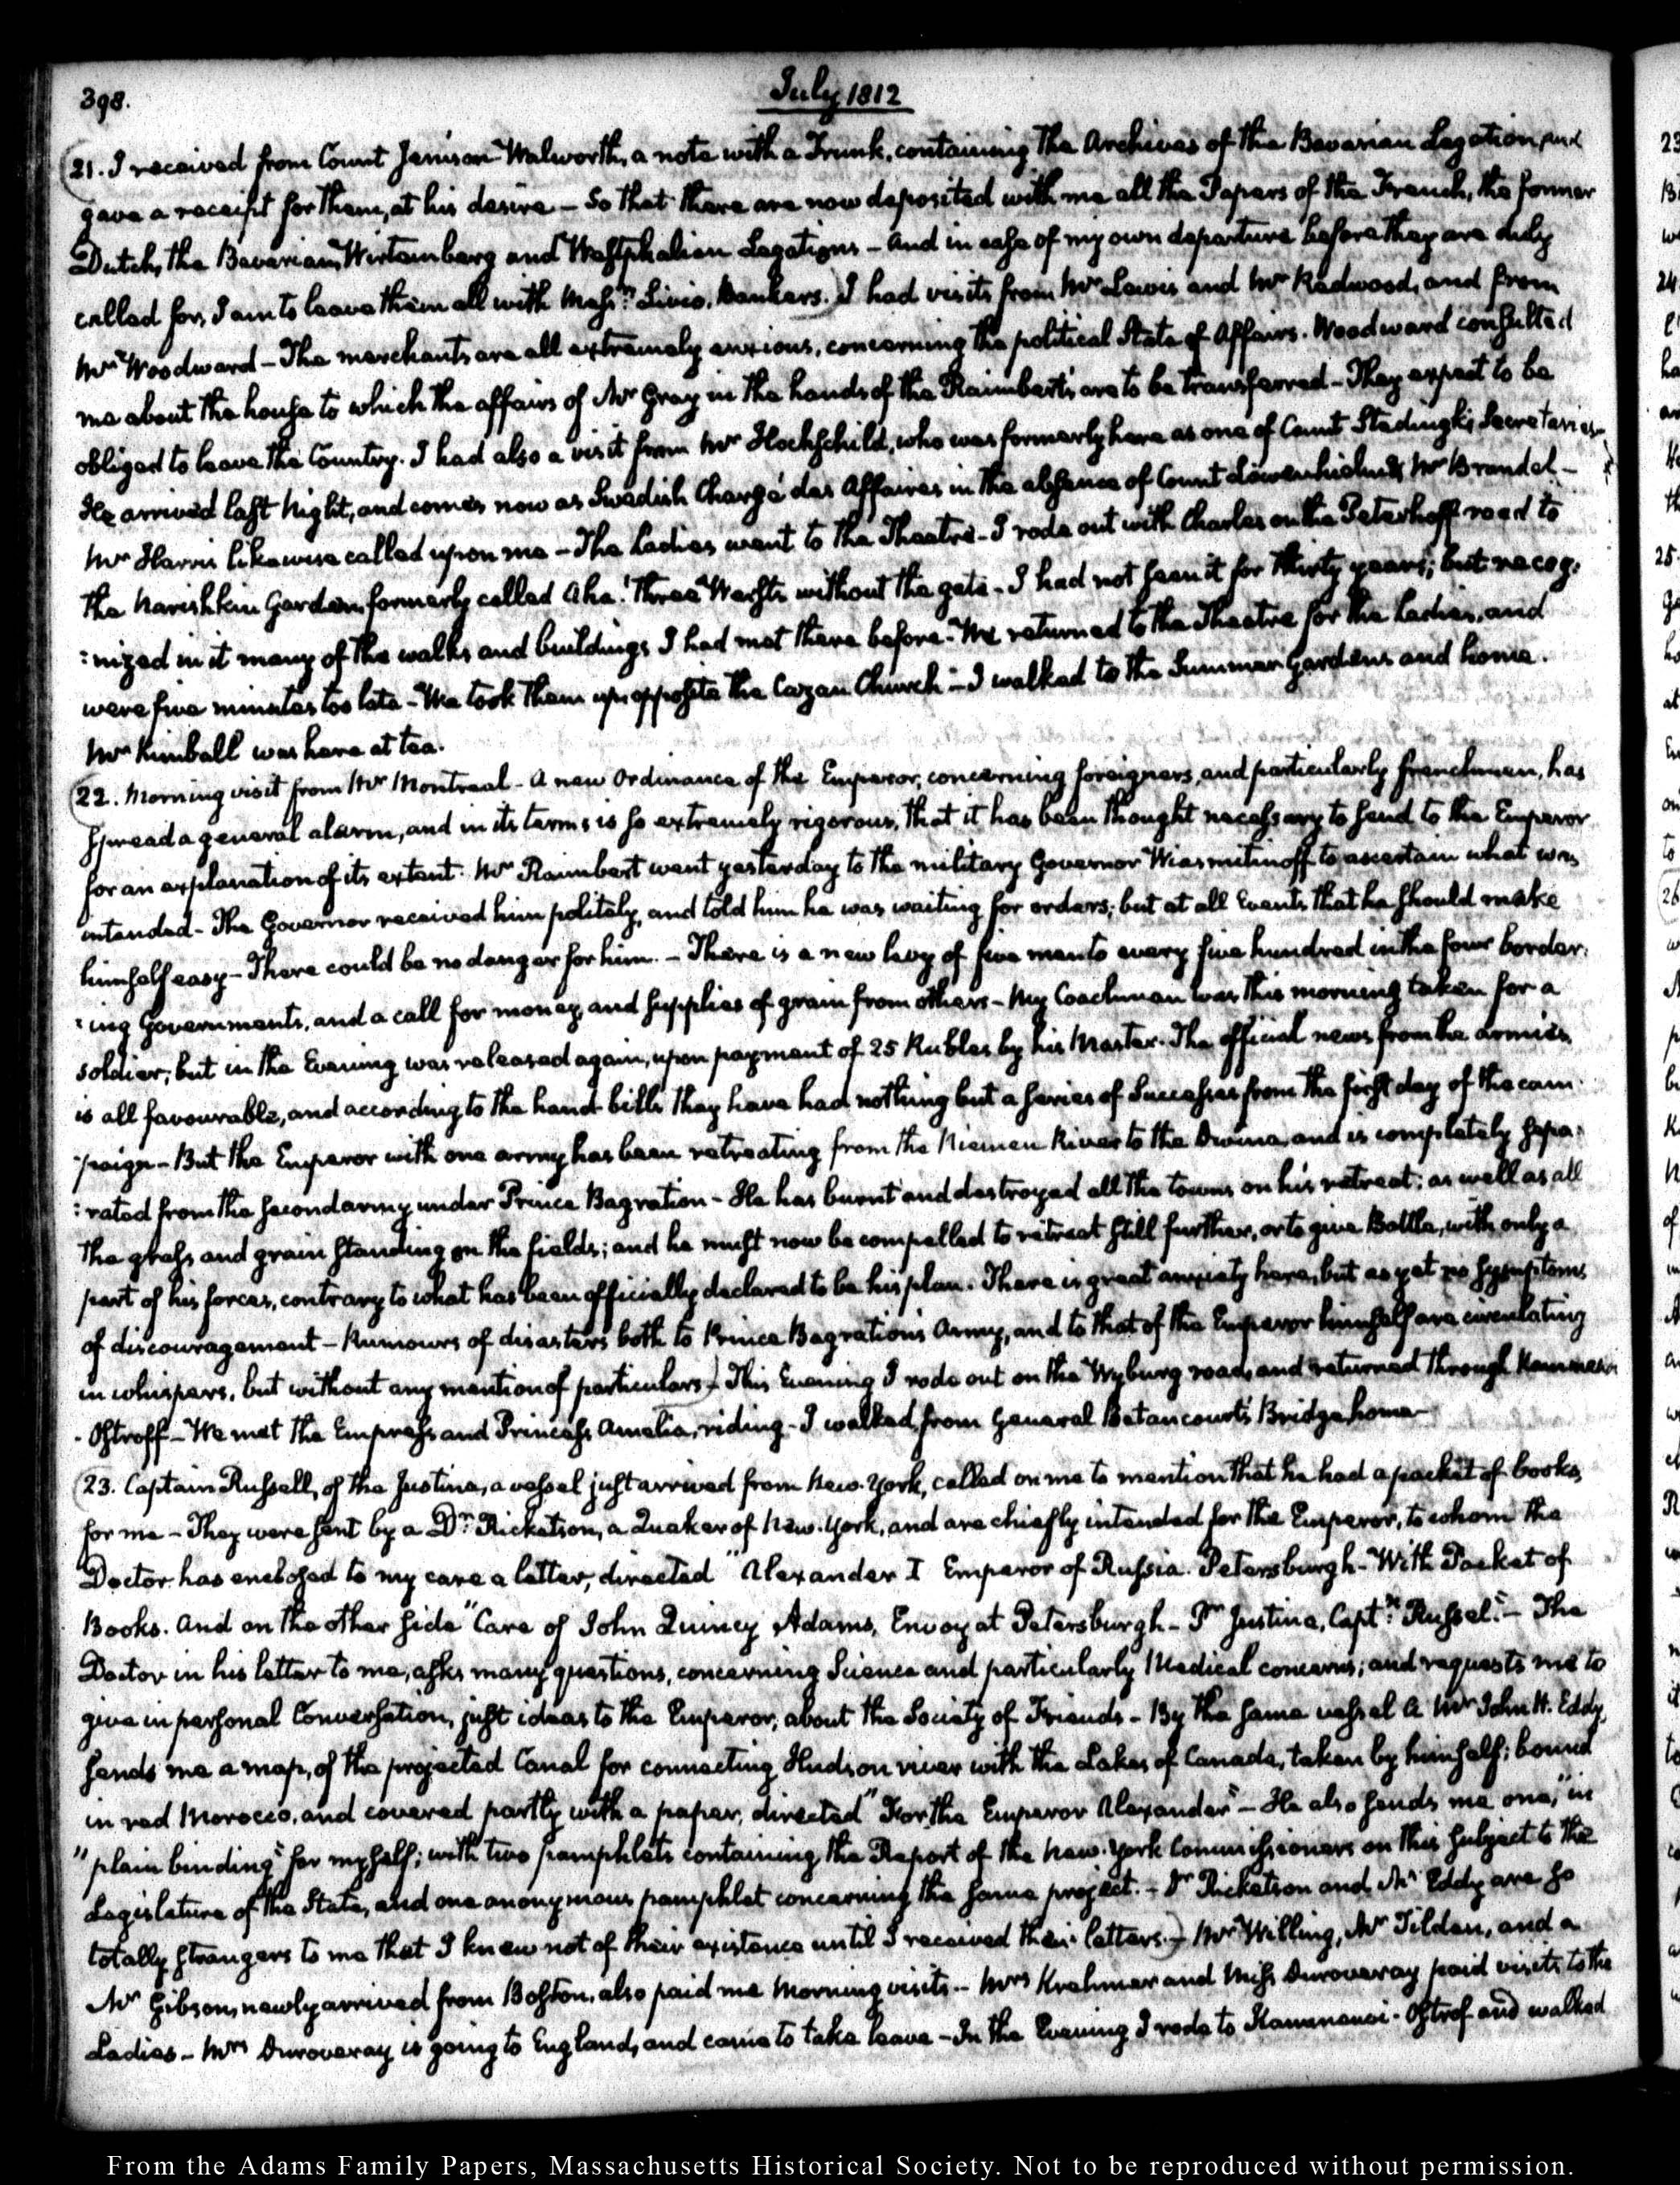 398.
July 1812
21. I received from Count Jenison-Walworth, a note with a Trunk, containing the Archives of the Bavarian Legation and
gave a receipt for them, at his desire — So that there are now deposited with me all the Papers of the French, the former
Dutch, the Bavarian, Wirtemberg and Westphalian Legations — And in case of my own departure before they are duly
called for, I am to leave them all with Messrs. Livio, Bankers. I had visits from Mr Lewis and Mr Redwood, and from
Mr Woodward — The merchants are all extremely anxious, concerning the political State of Affairs. Woodward consulted
me about the house to which the affairs of Mr Gray in the hands of the Raimberts are to be transferred — They expect to be
obliged to leave the Country. I had also a visit from Mr Hochschild, who was formerly here as one of Count Stedingk's Secretaries
He arrived last Night, and comes now as Swedish Chargé des Affaires in the absence of Count Löwenhielm & Mr Brandel —
Mr Harris likewise called upon me — The Ladies went to the Theatre — I rode out with Charles on the Peterhoff road to
the Narishkin Garden, formerly called Aha! Three Wersts without the gate — I had not seen it for thirty years; but recog:
:nized in it many of the walks and buildings I had met there before — We returned to the Theatre for the Ladies, and
were five minutes too late — We took them up opposite the Cazan Church — I walked to the Summer Gardens and home.
Mr Kimball was here at tea.
22. Morning visit from Mr Montreal — A new Ordinance of the Emperor, concerning foreigners, and particularly frenchmen, has
spread a general alarm, and in its terms is so extremely rigorous, that it has been thought necessary to send to the Emperor
for an explanation of its extent. Mr Raimbert went yesterday to the military Governor Wiasmitinoff to ascertain what was
intended — The Governor received him politely, and told him he was waiting for orders; but at all Events that he should make
himself easy — There could be no danger for him. — There is a new levy of five men to every five hundred in the four border:
:ing Governments, and a call for money, and supplies of grain from others — My Coachman was this morning taken for a
soldier; but in the Evening was released again, upon payment of 25 Rubles by his Master. The official news from the armies
is all favourable, and according to the hand-bills they have had nothing but a series of Successes from the first day of the cam
:paign — But the Emperor with one army has been retreating from the Niemen River to the Dwina, and is completely sepa:
:rated from the second army under Prince Bagration — He has burnt and destroyed all the towns on his retreat; as well as all
the grass and grain standing on the fields; and he must now be compelled to retreat still further, or to give Battle, with only a
part of his forces, contrary to what has been officially declared to be his plan. There is great anxiety here, but as yet no symptoms
of discouragement — Rumours of disasters both to Prince Bagration's Army, and to that of the Emperor himself are circulating
in whispers, but without any mention of particulars. This Evening I rode out on the Wyburg road, and returned through Kammenoi
- Ostroff — We met the Empress and Princess Amelia, riding — I walked from General Betancourt's Bridge home —
23. Captain Russell, of the Justina, a vessel just arrived from New-York, called on me to mention that he had a packet of books,
for me — They were sent by a Dr. Ricketson, a Quaker of New-York, and are chiefly intended for the Emperor, to whom the
Doctor has enclosed to my care a letter, directed "Alexander I Emperor of Russia. Petersburgh — With Packet of
Books. And on the other side "Care of John Quincy Adams, Envoy at Petersburgh — Pr Justina, Captn: Russel." — The
Doctor in his letter to me, asks many questions, concerning Science and particularly Medical concerns; and requests me to
give in personal Conversation, just ideas to the Emperor, about the Society of Friends — By the same vessel a Mr John H. Eddy,
sends me a map, of the projected Canal for connecting Hudson river with the Lakes of Canada, taken by himself; bound
in red Morocco, and covered partly with a paper, directed "For the Emperor Alexander" — He also sends me one, "in
"plain binding" for myself; with two pamphlets containing the Report of the New-York Commissioners on this subject to the
Legislature of the State, and one anonymous pamphlet concerning the same project. — Dr Ricketson and Mr Eddy are so
totally strangers to me that I knew not of their existence until I received their letters. — Mr Willing, Mr Tilden, and a
Mr Gibson, newly arrived from Boston, also paid me Morning visits — Mrs Krehmer and Miss Duroveray paid visits to the
Ladies — Mrs Duroveray is going to England, and came to take leave — In the Evening I rode to Kamenenoi-Ostrof and walked
From the Adams Family Papers, Massachusetts Historical Society. Not to be reproduced without permission.